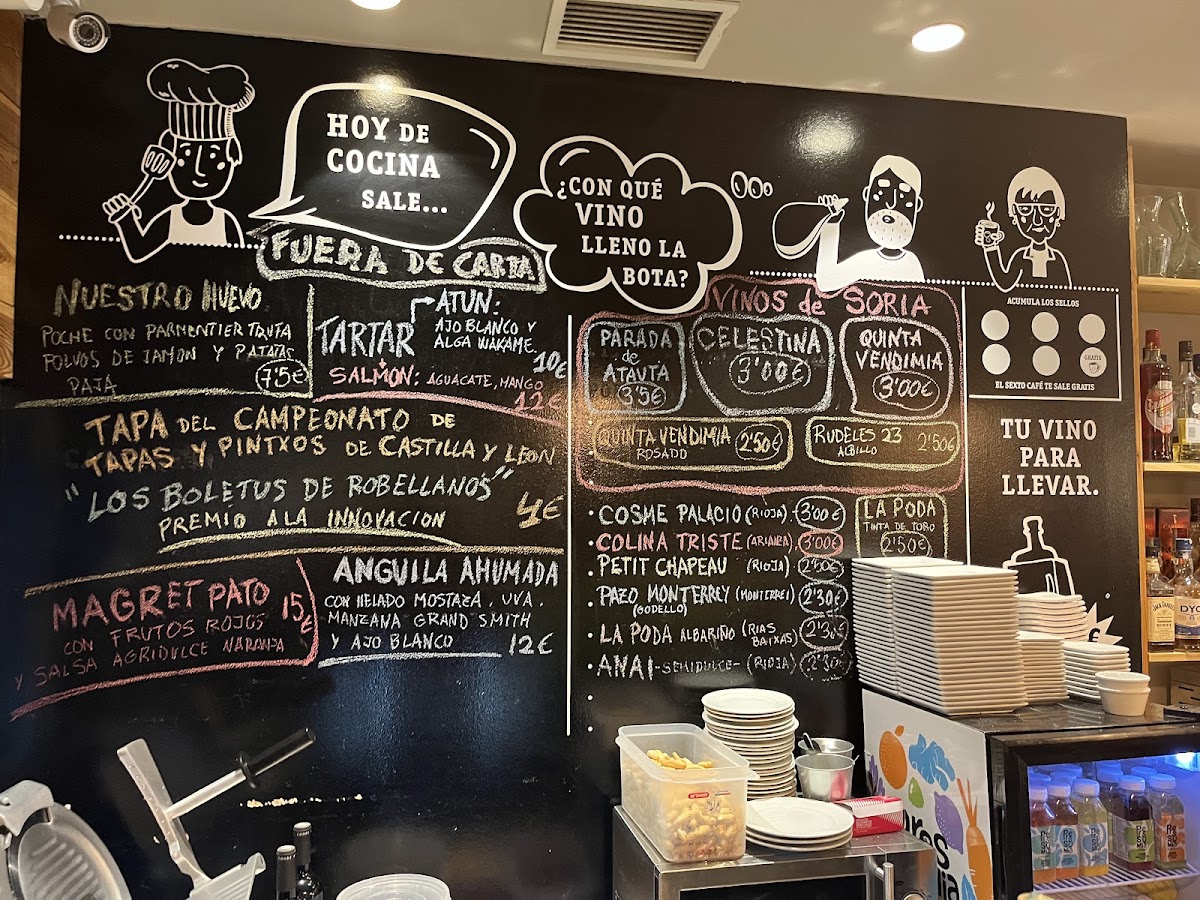 HOY DE
COCINA
SALE...
¿CON QUÉ
VINO
LLENO LA
BOTA?
FUERA DE CARTA
NUESTRO HUEVO
POCHE CON PARMENTIER TRUFA
POLVOS DE JAMON Y PATATAS
PAJA
7'5€
TARTAR
ATUN:
AJO BLANCO Y
ALGA WAKAME
10€
SALMON: AGUACATE, MANGO
12€
TAPA DEL CAMPEONATO DE
TAPAS Y PINTXOS DE CASTILLA Y LEON
"LOS BOLETUS DE ROBELLANOS"
PREMIO A LA INNOVACION
4€
MAGRET PATO
15€
CON FRUTOS ROJOS
Y SALSA AGRIDULCE NARANJA
ANGUILA AHUMADA
CON HELADO MOSTAZA, UVA,
MANZANA GRAND SMITH
Y AJO BLANCO
12€
VINOS de SORIA
PARADA
de
ATAUTA
3'5€
CELESTINA
3'00€
QUINTA
VENDIMIA
3'00€
QUINTA VENDIMIA
ROSADO
2'50€
RUDELES 23
ALBILLO
2'50€
• COSME PALACIO (RIOJA). 3'00€
• COLINA TRISTE (ARLANZA). 3'00€
• PETIT CHAPEAU (RIOJA)
• PAZO MONTERREY (MONTERREI) 2'30€
(GODELLO)
• LA PODA ALBARIÑO (RIAS BAIXAS) 2'30€
• ANAI -SEMIDULCE- (RIOJA) 2'30€
LA PODA
TINTA DE TORO
2'50€
ACUMULA LOS SELLOS
GRATIS
EL SEXTO CAFÉ TE SALE GRATIS
TU VINO
PARA
LLEVAR.
JACK DANIEL'S
DYC